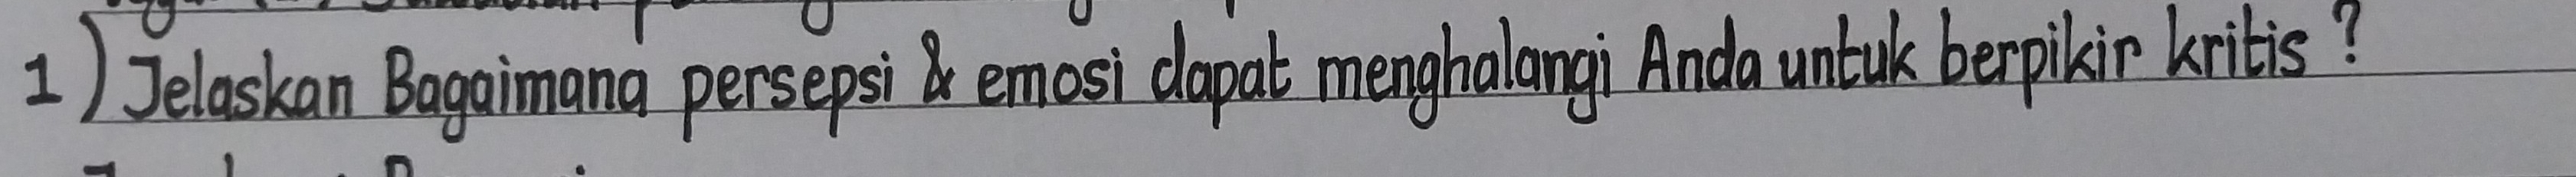 1) Jelaskan Bagaimana persepsi & emosi dapat menghalangi Anda untuk berpikir kritis?